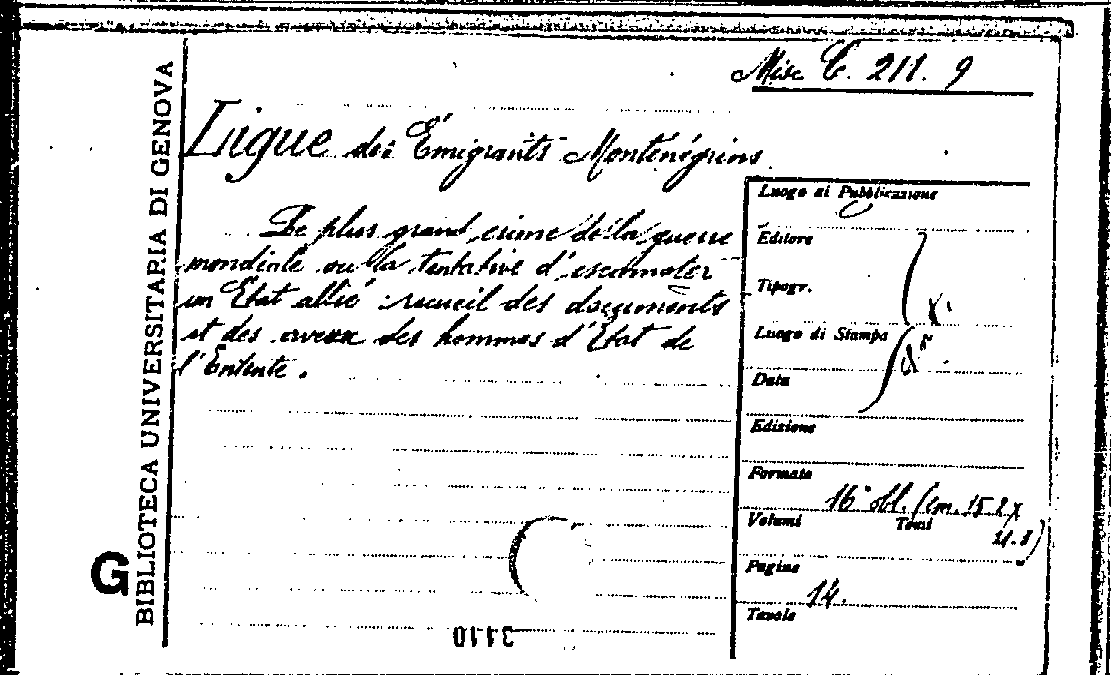 Misc C. 211. 9
Ligue des Émigrants Monténégrins
Le plus grand crime de la guerre
mondiale ou la tentative d'escamoter
un État allié : recueil des documents
et des aveux des hommes d'État de
l'Entente.
BIBLIOTECA UNIVERSITARIA DI GENOVA
G
Luogo di Pubblicazione
Editore
Tipogr.
Luogo di Stampa
Data
Edizione
Formato
16° obl. (cm. 15 2 x
Volumi Tomi
21.8)
Pagine
14.
Tavole
3110